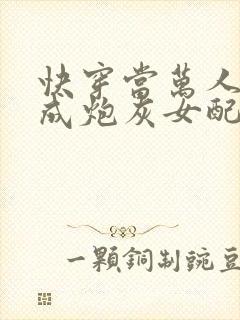 快穿當萬人
成炮灰女配
一顆銅制豌豆